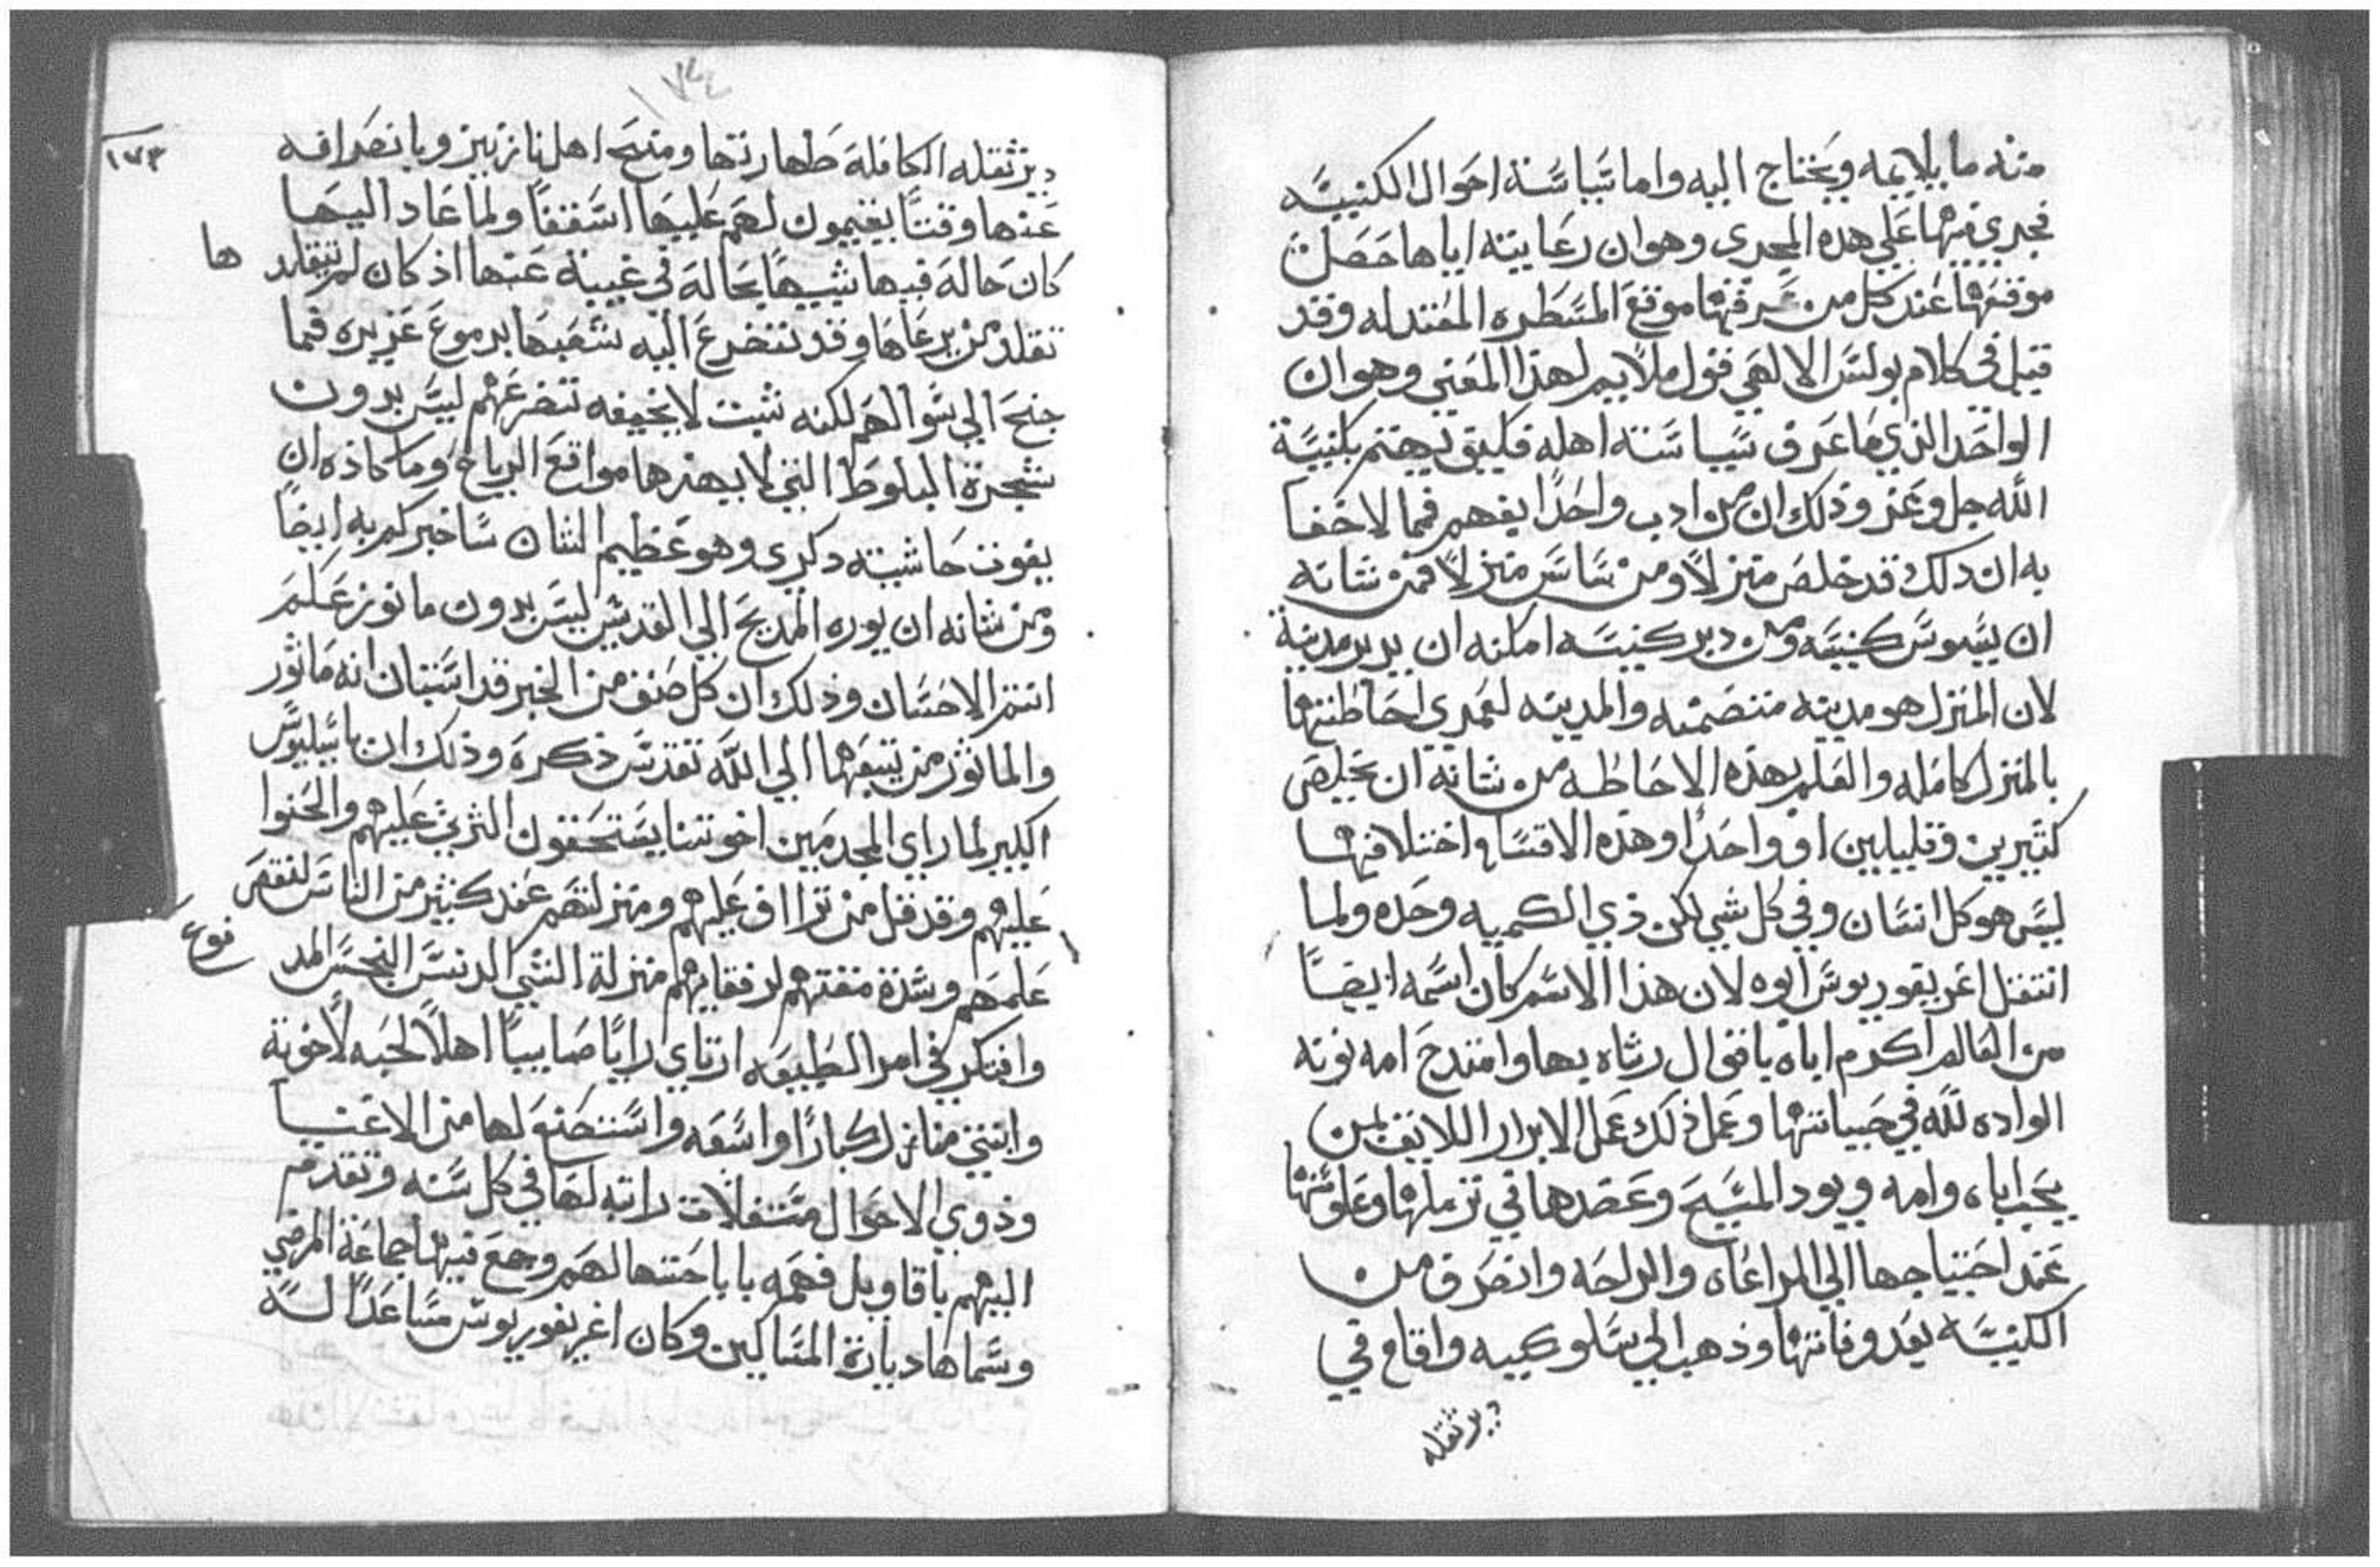 منه ما يلايمه ويحتاج اليه واما سياسة احوال الكنيسه
فجري فيها علي هده المجري وهو ان رعايته اياها حصلت
موقعها عند كل من عرفها موقع المسطره المعتدله وقد
قيل في كلام بولس الالهي قول ملايم لهذا المعني وهو ان
الواحد الذي ما عرف سياسة اهله فكيف يهتم بكنيسة
الله جل وعز وذلك ان من ادب واحدا يفهم فما لا خفا
به ان ذلك قد خلص منزلاً ومن ساس منزلاً فمن شانه
ان يسوس كنيسه ومن دبر كنيسه امكنه ان يدبر مدينة
لان المنزل هو مدينه متضمنه والمدينه لعمري احاطتها
بالمنزل كامله والعلم بهذه الاحاطه من شانه ان يخلص
كثيرين وقليلين او واحدا وهذه الاقسام واختلافها
ليس هو كل انسان وفي كل شي لكن ذي الكميه وحده ولما
انتقل اغريغوريوس ابوه لان هذا الاسم كان اسمه ايضاً
من العالم اكرم اباه باقوال رثاه بها وامتدح امه نونه
الواده لله في حياتها وعمل ذلك عمل الابرار اللايق بمن
يحب اباه وامه ويود المسيح وعضدها في ترملها وعلونتها
عند احتياجها الي المراعاه والراحه وانصرف من
الكنيسه بعد وفاتها وذهب الي سلوكيه واقام في
دير ثقله
١٧٣
دير ثقله الكامله طهارتها ومنح اهل نازينز وبانصرافه
عنها وقتاً يقيمون لهم عليها اسقفاً ولما عاد اليها
كان حاله فيها شبيهاً بحاله في غيبته عنها اذ كان لم يتقلد ها
تقلد من يرعاها وقد تضرع اليه شعبها بدموع غزيره فما
جنح الي سوالهم لكنه ثبت لا يخيفه تضرعهم ليس بدون
شجرة البلوط التي لا يهزها مواقع الرياح وما كاده ان
يفوت حاشيته دكري وهو عظيم الشان ساخبركم به ايضاً
ومن شانه ان يوره المديح الي القديس ليس بدون ما نوز علم
انتم الاحسان وذلك ان كل صنف من الخير قد استبان انه ماثور
والماثور من يتبعهما الي الله تقدس ذكره وذلك ان باسيليوس
الكبير لما راي المجدمين اخوتنا يستحقون الترثي عليهم والحنوا
عليهم وقد قل من تراف عليهم ومنزلتهم عند كثير من الناس لنقص
علمهم وشدة مقتهم لرفقايهم منزلة الشي الدنس النجس المد فوع
وافتكر في امر الطبيعه ارتاي رايًا صايبيًا اهلاً لحبه لاخوته
وابتني منازل كبارًا واسعه واستحنو لها من الاغنيا
وذوي الاحوال مستغلات راتبه لها في كل سنه وتقدم
اليهم باقاويل فهمه باباحتها لهم وجمع فيها جماعة المرضي
وسماها ديارة المساكين وكان اغريغوريوس مساعدًا له